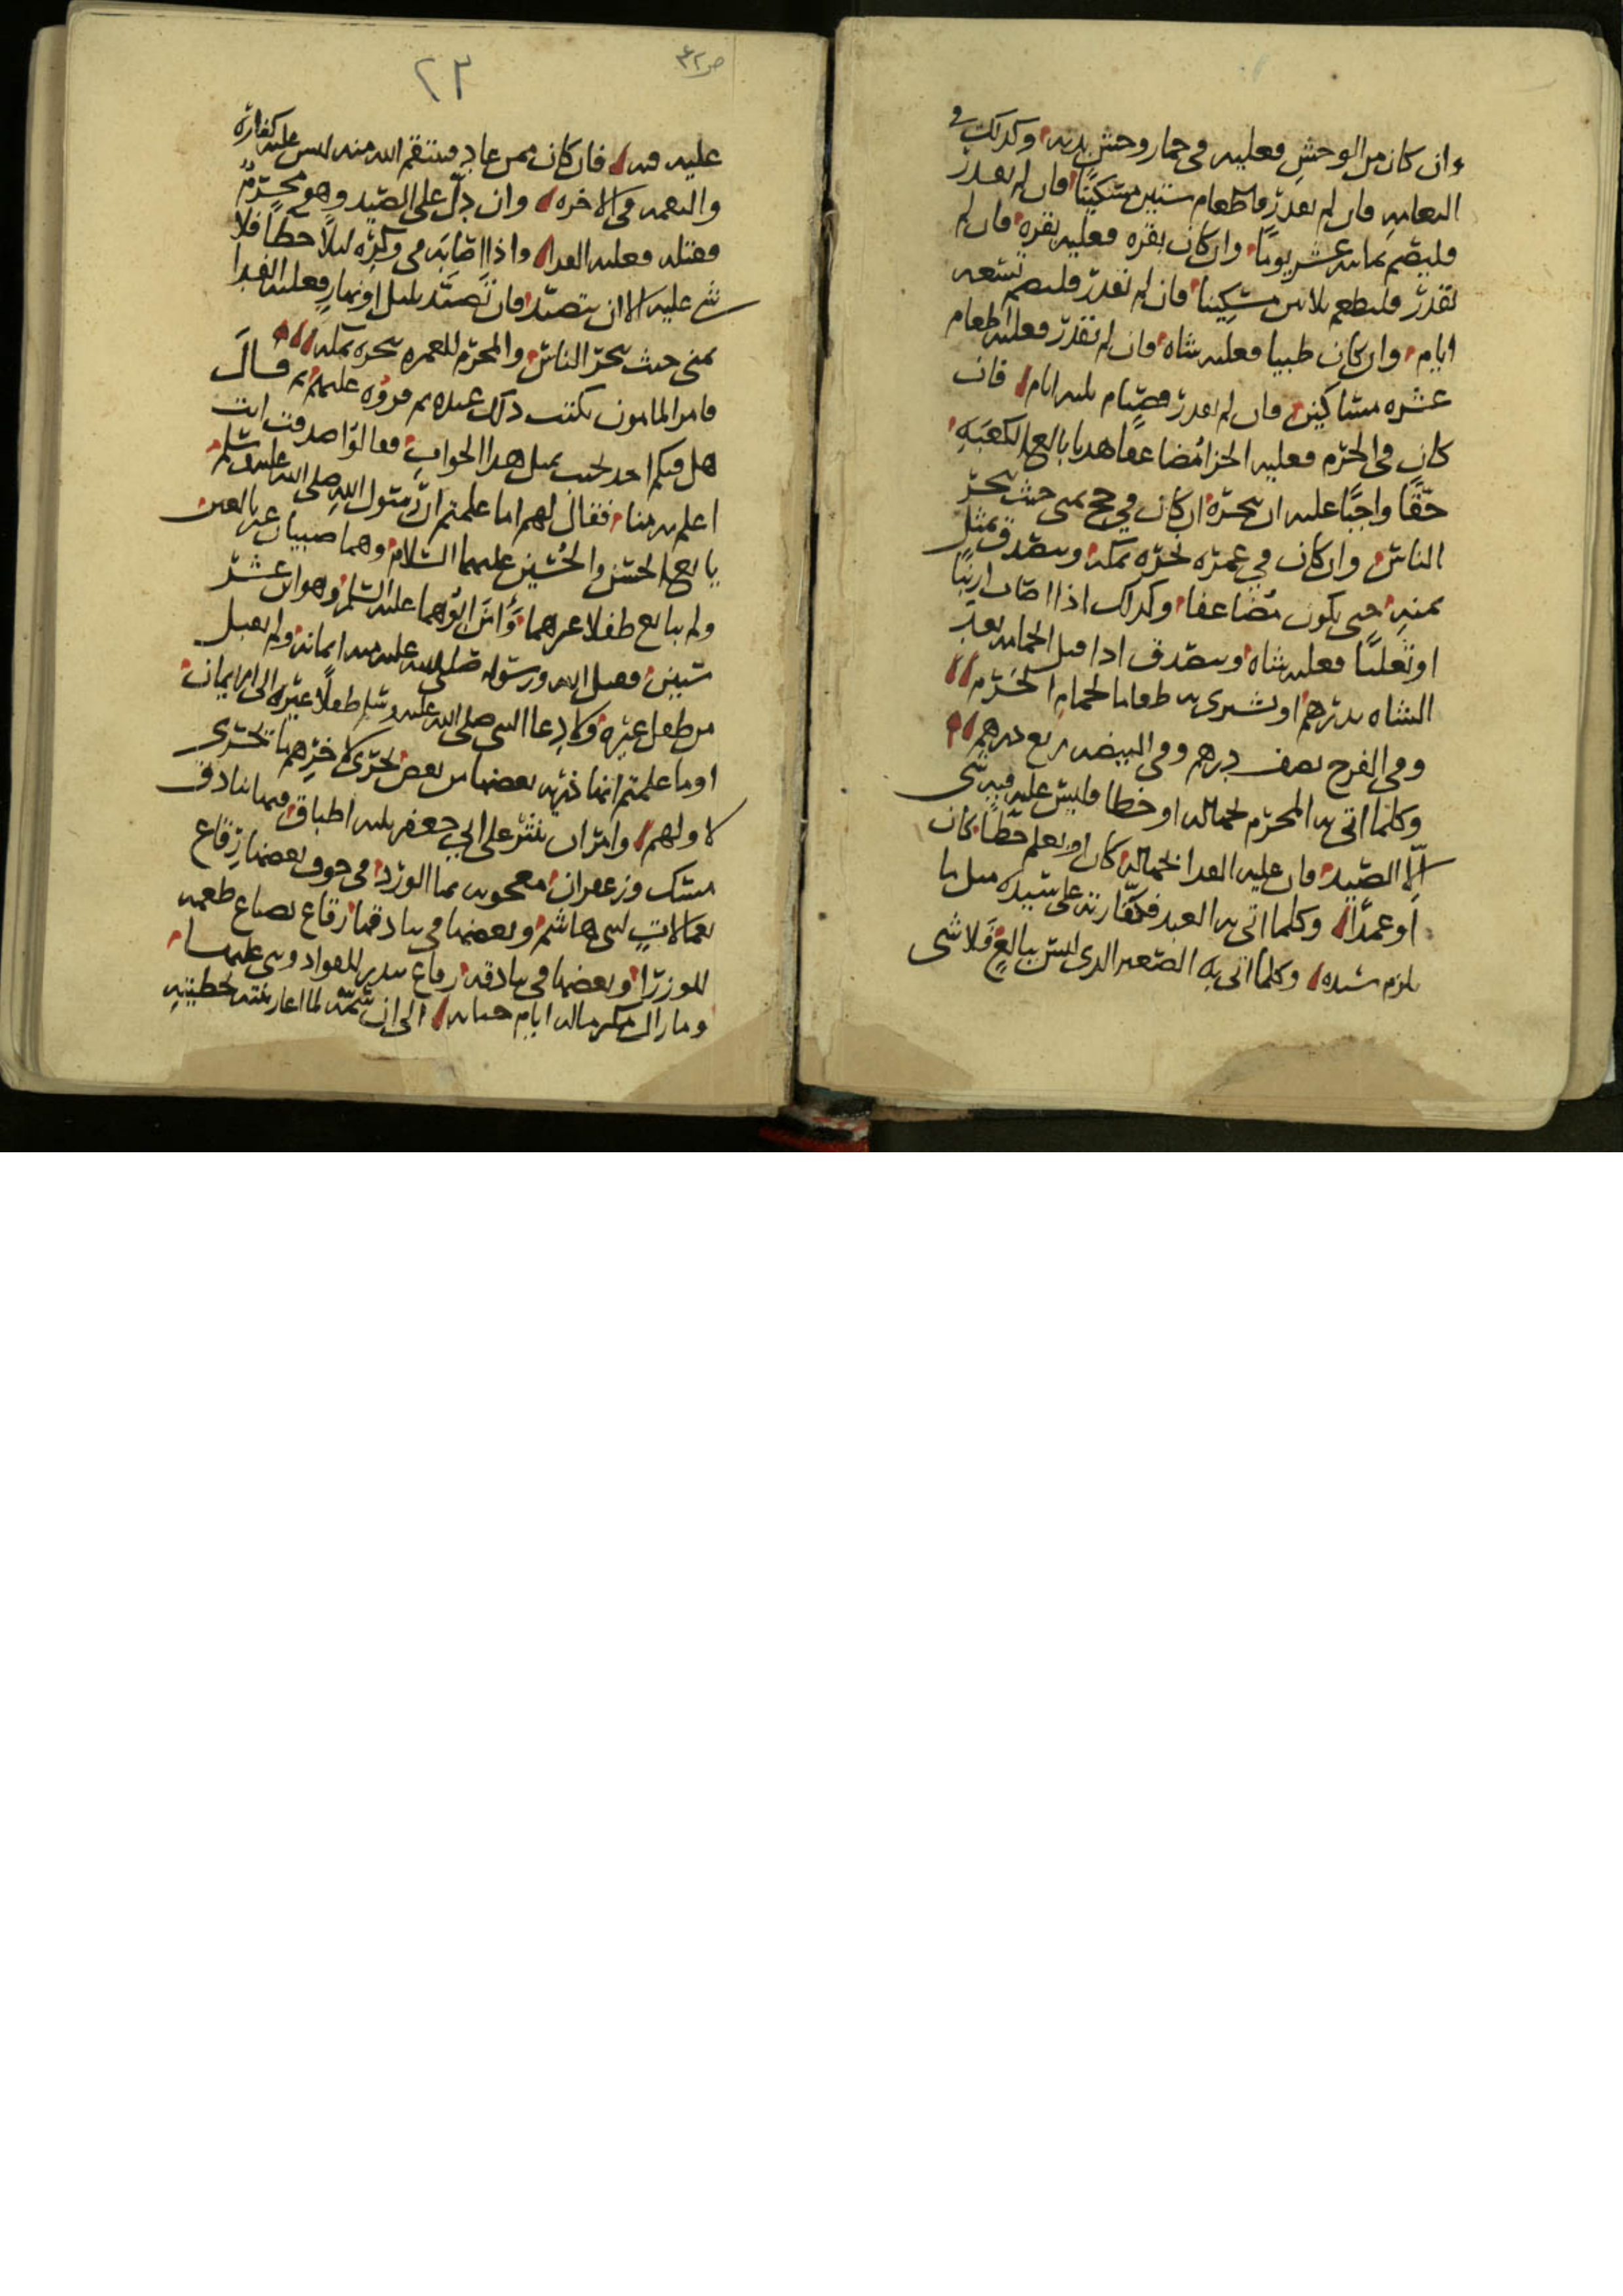 وان كان من الوحش فعليه في حمار وحش بدنه وكذلك في
النعامه فان لم يقدر فاطعام ستين مسكينا فان لم يقدر
فليصم ثمانيه عشر يوما وان كان بقره فعليه بقره فان لم
يقدر فليطعم ثلاثين مسكينا فان لم يقدر فليصم تسعه
ايام وان كان ظبيا فعليه شاه فان لم يقدر فعليه اطعام
عشره مساكين فان لم يقدر فصيام ثلثه ايام فان
كان في الحرم فعليه الجزا مضاعفا هديا بالغ الكعبه
حقا واجبا عليه ان ينحره ان كان في حج بمنى حيث ينحر
الناس وان كان في عمره نحره بمكه ويتصدق بمثل
ثمنه حتى يكون مضاعفا وكذلك اذا اصاب ارنبا
او ثعلبا فعليه شاه ويتصدق اذا قتل الحمامه بعد
الشاه بدرهم او يشتري به طعاما لحمام الحرم
وفي الفرخ نصف درهم وفي البيضه ربع درهم
وكلما اتى به المحرم بجهاله او خطا فليس عليه فيه شي
الا الصيد فان عليه الفدا بجهاله كان او بعلم خطا كان
او عمدا وكلما اتى به العبد فكفارته على سيده مثل ما
يلزم سيده وكلما اتى به الصغير الذي ليس ببالغ فلا شي
ص ٤٢
٢٣
عليه فيه فان كان ممن عاد فينتقم الله منه ليس عليه كفاره
والنقمه في الاخره وان دل على الصيد وهو محرم
فقتله فعليه الفدا واذا اصابه في وكره ليلا خطا فلا
شي عليه الا ان يتصيد فان تصيد بليل او نهار فعليه الفدا
بمنى حيث ينحر الناس والمحرم للعمره ينحره بمكه
فامر المامون يكتب ذلك عنده ثم قروه عليهم ثم قال
هل فيكم احد يجيب بمثل هذا الجواب فقالوا صدقت انت
اعلم به منا فقال لهم اما علمتم ان رسول الله صلى الله عليه وسلم
بايع الحسن والحسين عليهما السلام وهما صبيان غير بالغين
ولم يبايع طفلا غيرهما وامن ابوهما عليه السلم وهو ابن عشر
سنين فقبل الله ورسوله صلى الله عليه منه ايمانه ولم يقبل
من طفل غيره ولا دعا النبي صلى الله عليه وسلم طفلا غيره الى الايمان
او ما علمتم انها ذريه بعضها من بعض يجري لاخرهم ما يجري
لاولهم وامر ان ينثر على ابي جعفر ثلثه اطباق فيها بنادق
مسك وزعفران معجون بما الورد في جوف بعضها رقاع
بعمالات لبني هاشم وبعضها في بنادقها رقاع بضياع طعمه
للوزرا وبعضها في بنادقه رقاع ببدر للقواد
وما زال مكرما له ايام حياته الى ان سمته